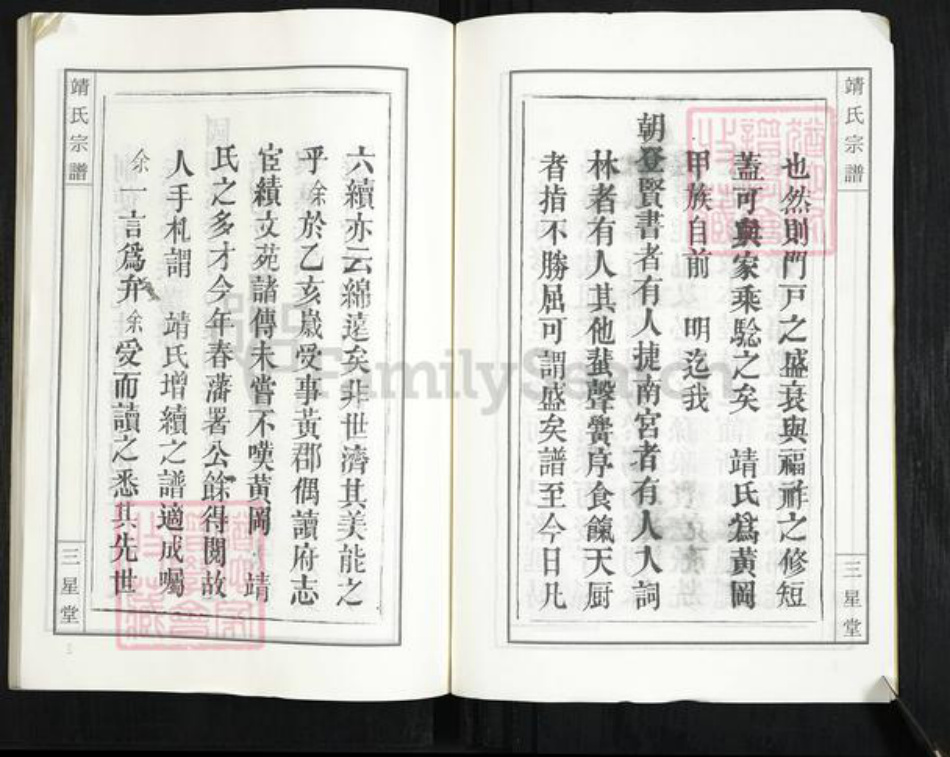 靖氏宗譜
三星堂
也然則門戸之盛衰與福祚之修短
蓋可與家乘騐之矣　靖氏爲黃岡
甲族自前　明迄我
朝登賢書者有人捷南宮者有人入詞
林者有人其他蜚聲黌序食餼天厨
者指不勝屈可謂盛矣譜至今日凡
六續亦云綿遠矣非世濟其美能之
乎余於乙亥歲受事黃郡偶讀府志
宦績文苑諸傳未嘗不嘆黃岡　靖
氏之多才今年春藩署公餘得閱故
人手札謂　靖氏增續之譜適成囑
余一言爲弁余受而讀之悉其先世
靖氏宗譜
三星堂
2
FamilySearch